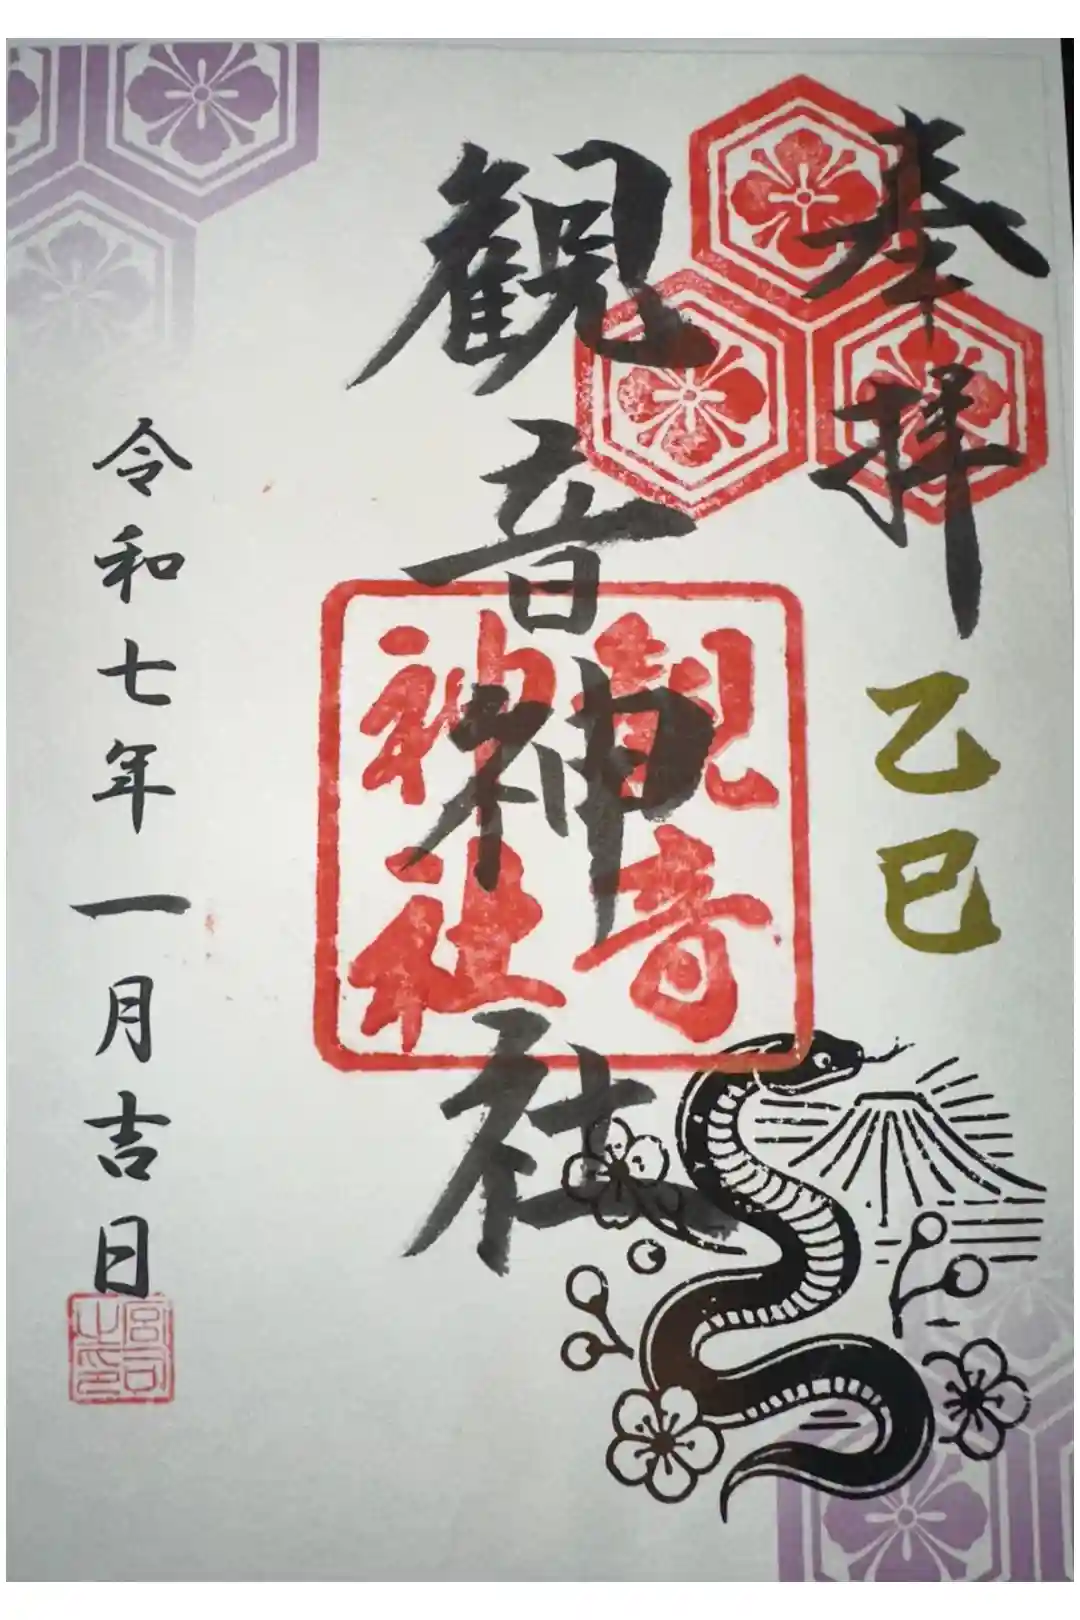 奉拝
乙巳
観音神社
観音
神社
令和七年一月吉日
宮司
之印